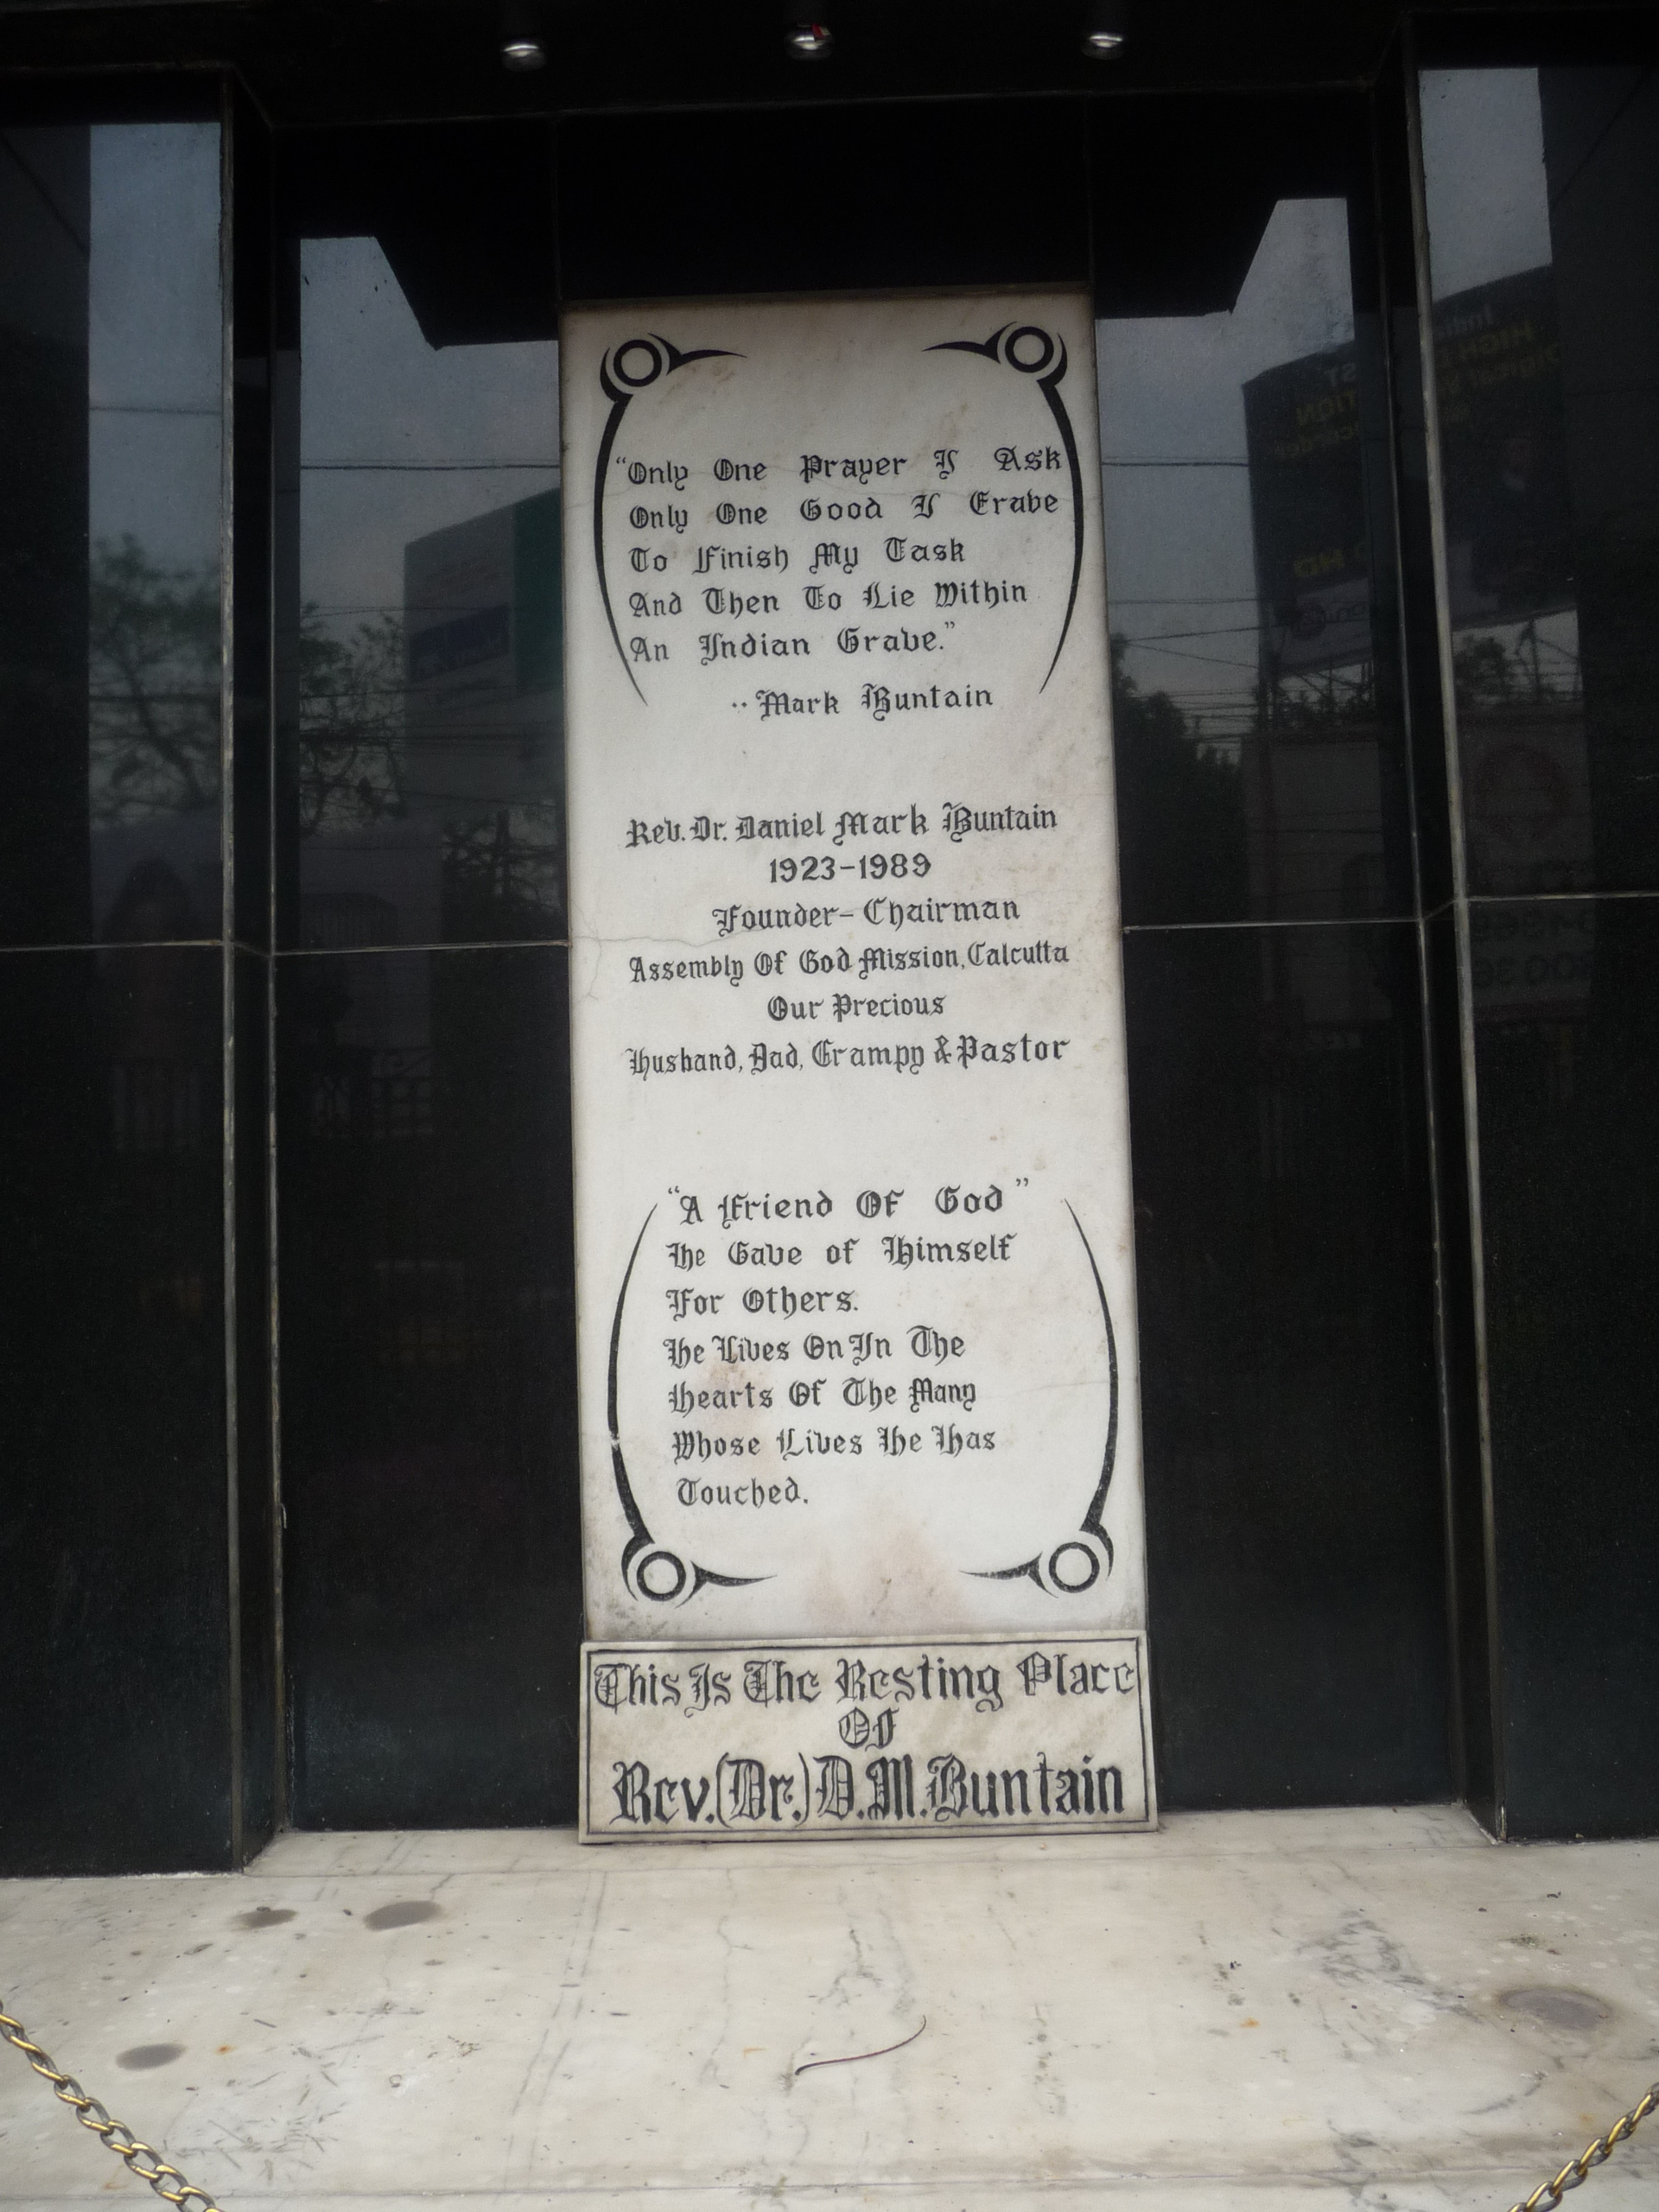 “Only One Prayer I Ask
Only One Good I Crave
To Finish My Task
And Then To Lie Within
An Indian Grave.”
--Mark Buntain
Rev. Dr. Daniel Mark Buntain
1923-1989
Founder-Chairman
Assembly Of God Mission, Calcutta
Our Precious
Husband, Dad, Grampy & Pastor
“A Friend Of God”
He Gave of Himself
For Others.
He Lives On In The
Hearts Of The Many
Whose Lives He Has
Touched.
This Is The Resting Place
Of
Rev.(Dr.) D.M. Buntain